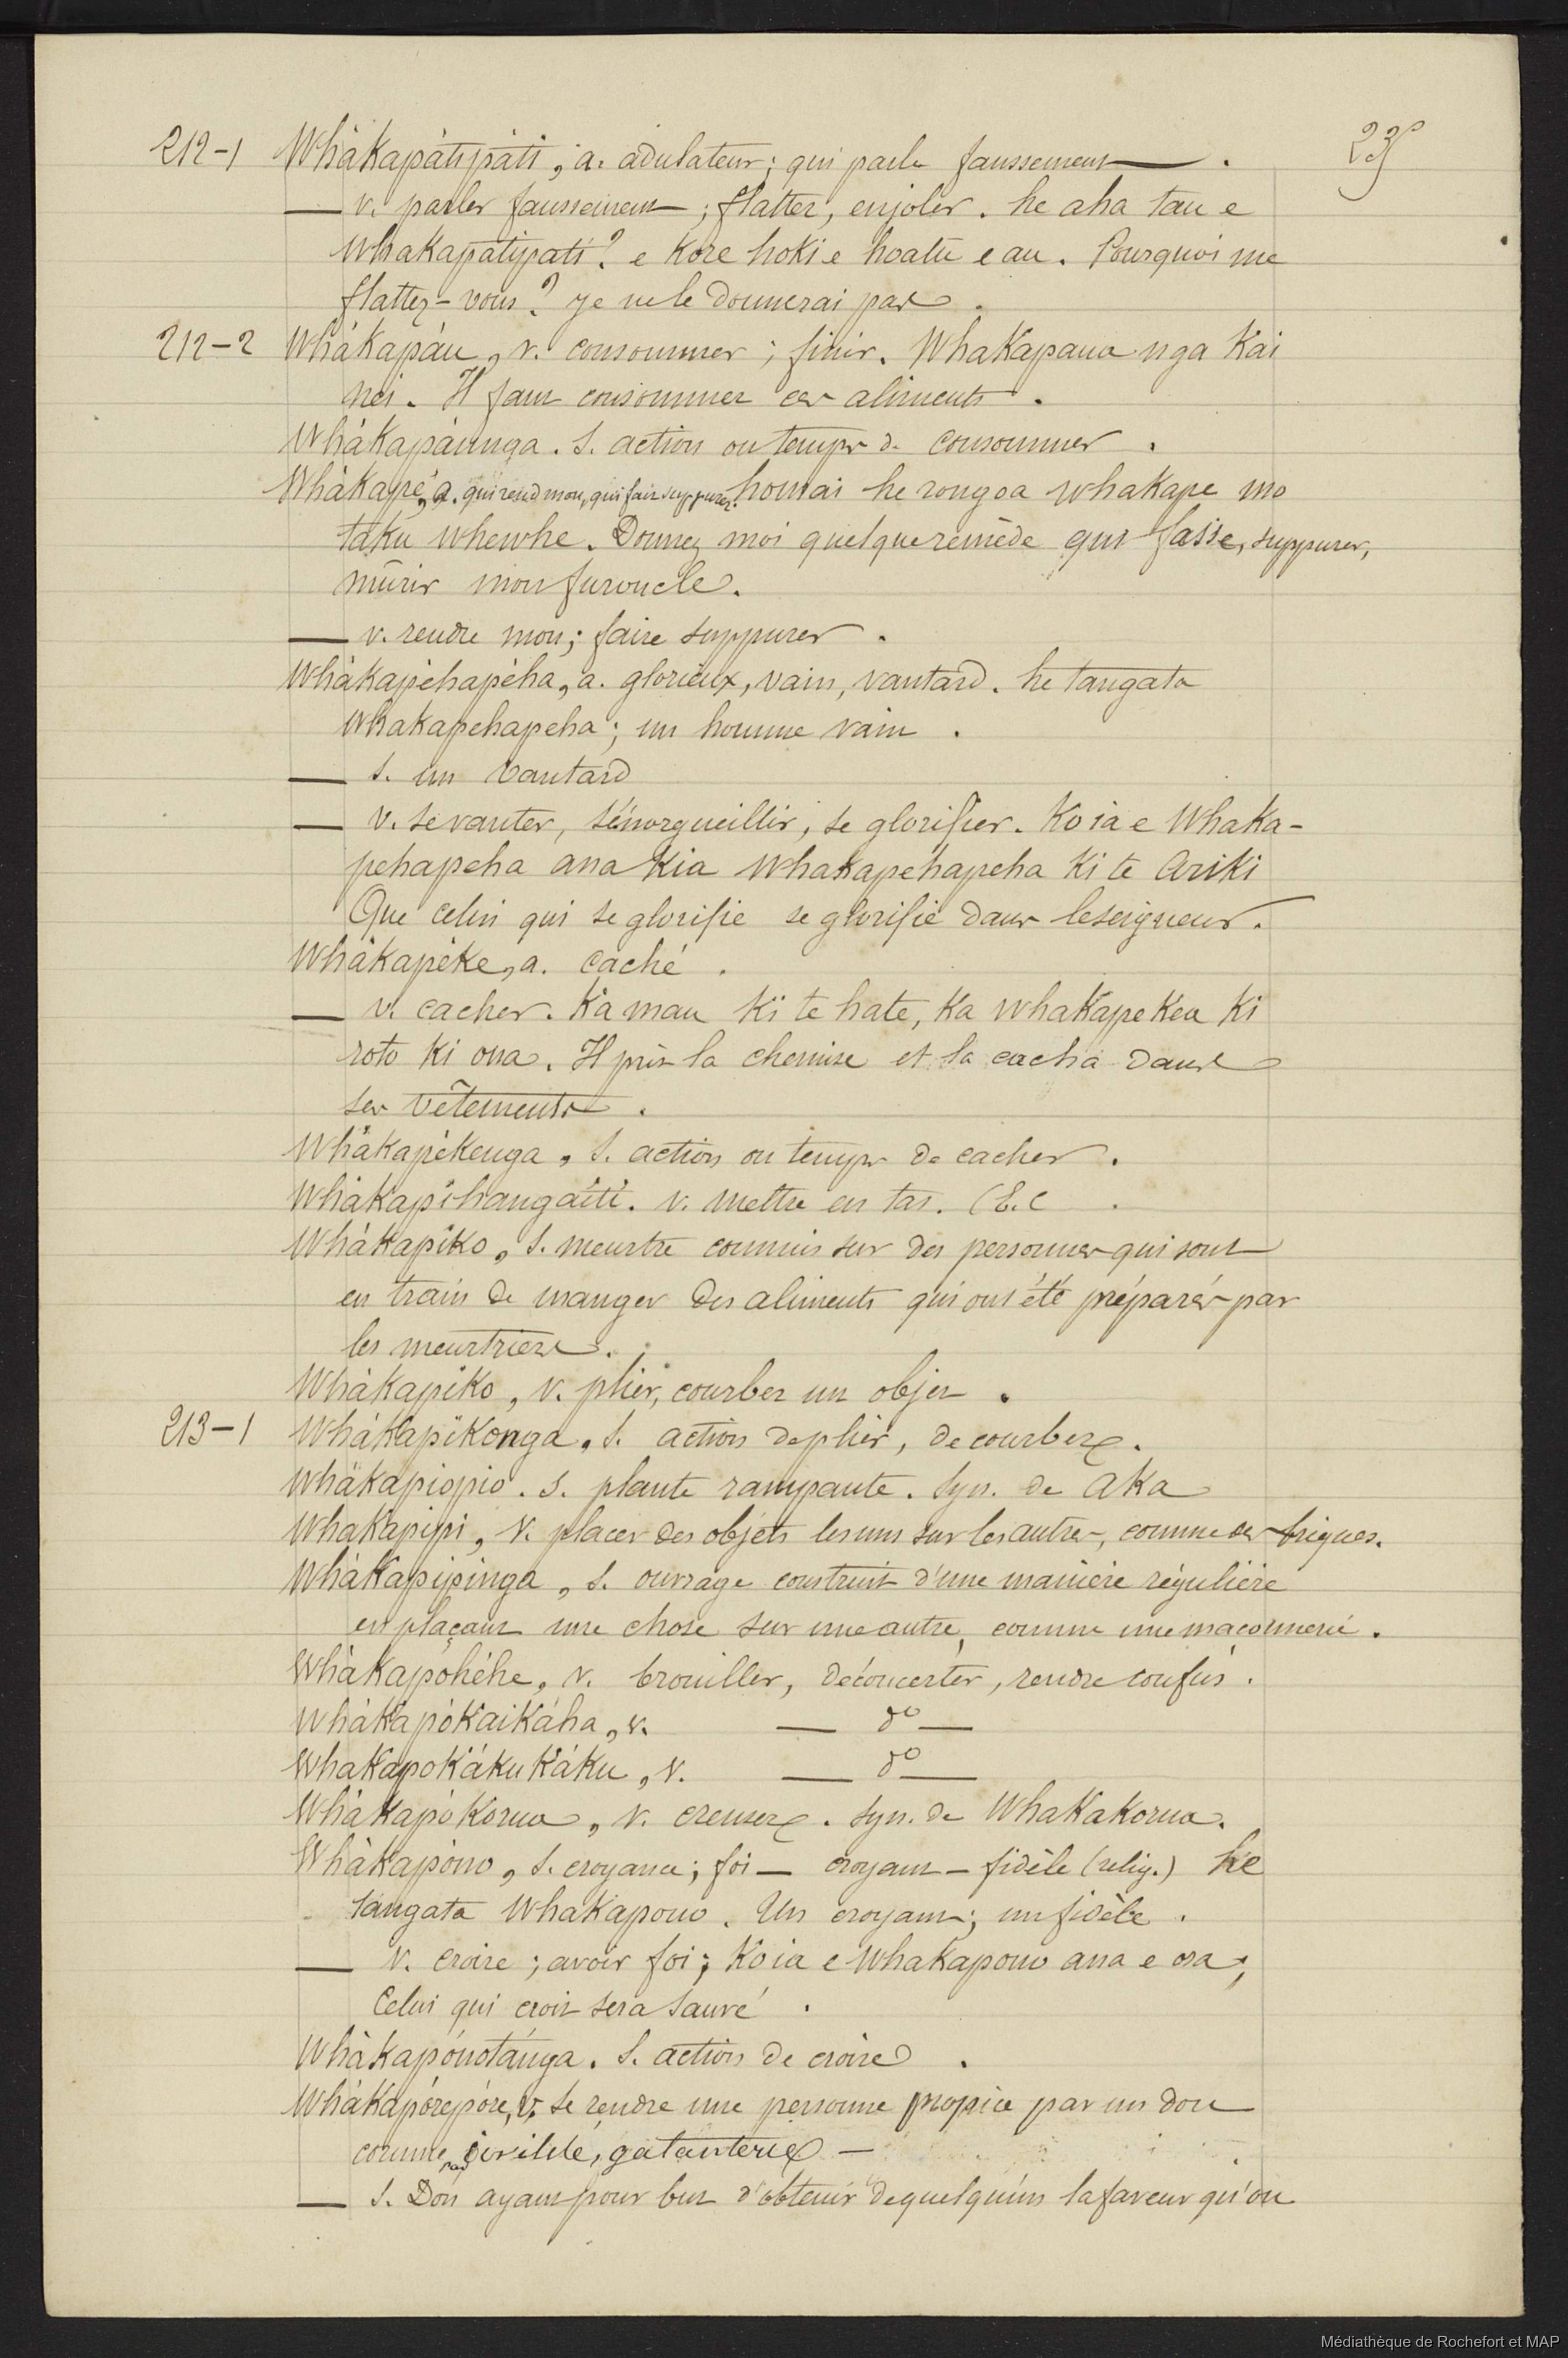 23
212-1 Whàkapàtipàti, a. adulateur; qui parle faussement.
— v. parler faussement; flatter, enjoler. he aha tau e
whakapatipati? e kore hoki e hoatu e au. Pourquoi me
flattez-vous? je ne le donnerai pas.
212-2 Whàkapàu, v. consommer; finir. Whakapaua nga kai
nei. Il faut consommer ces aliments.
Whàkapàunga. s. action ou temps de consommer.
Whàkapé, a. qui rend mou, qui fait suppurer. homai he rongoa whakape mo
taku whewhe. Donnez moi quelque remède qui fasse, suppurer,
mûrir mon furoncle.
— v. rendre mou; faire suppurer.
Whàkapèhapèha, a. glorieux, vain, vantard. he tangata
whakapehapeha; un homme vain.
— s. un vantard
— v. se vanter, s'énorgueillir, se glorifier. Ko ia e whaka-
pehapeha ana kia whakapehapeha ki te Ariki
Que celui qui se glorifie se glorifie dans le seigneur.
Whàkapèke, a. caché.
— v. cacher. Ka mau ki te hate, ka whakapekea ki
roto ki ona. Il prit la chemise et la cacha dans
ses vêtements.
Whàkapèkenga, s. action ou temps de cacher.
Whàkapihangaiti. v. mettre en tas. (E.C
Whàkapiko, s. meurtre commis sur des personnes qui sont
en train de manger des aliments qui ont été préparés par
les meurtriers.
Whàkapiko, v. plier, courber un objet.
213-1 Whàkapikonga, s. action de plier, de courber.
Whàkapiopio. s. plante rampante. Syn. de Aka
Whakapipi, v. placer des objets les uns sur les autres, comme des briques.
Whàkapipinga, s. ouvrage construit d'une manière régulière
en plaçant une chose sur une autre, comme une maçonnerie.
Whàkapòhéhe, v. brouiller, déconcerter, rendre confus.
Whàkapòkaikàha, v. — do —
Whakapokàkukàku, v. — do —
Whàkapòkorua, v. creuser. Syn. de Whakakorua.
Whàkapòno, s. croyance; foi — croyant — fidèle (relig.) he
tangata whakapono. Un croyant; un fidèle.
— v. croire; avoir foi; Ko ia e whakapono ana e ora;
Celui qui croit sera sauvé.
Whàkapònotànga. s. action de croire.
Whàkapórepóre, v. se rendre une personne propice par un don
comme par civilité, galanterie —
— s. Don ayant pour but d'obtenir de quelqu'un la faveur qu'on
Médiathèque de Rochefort et MAP